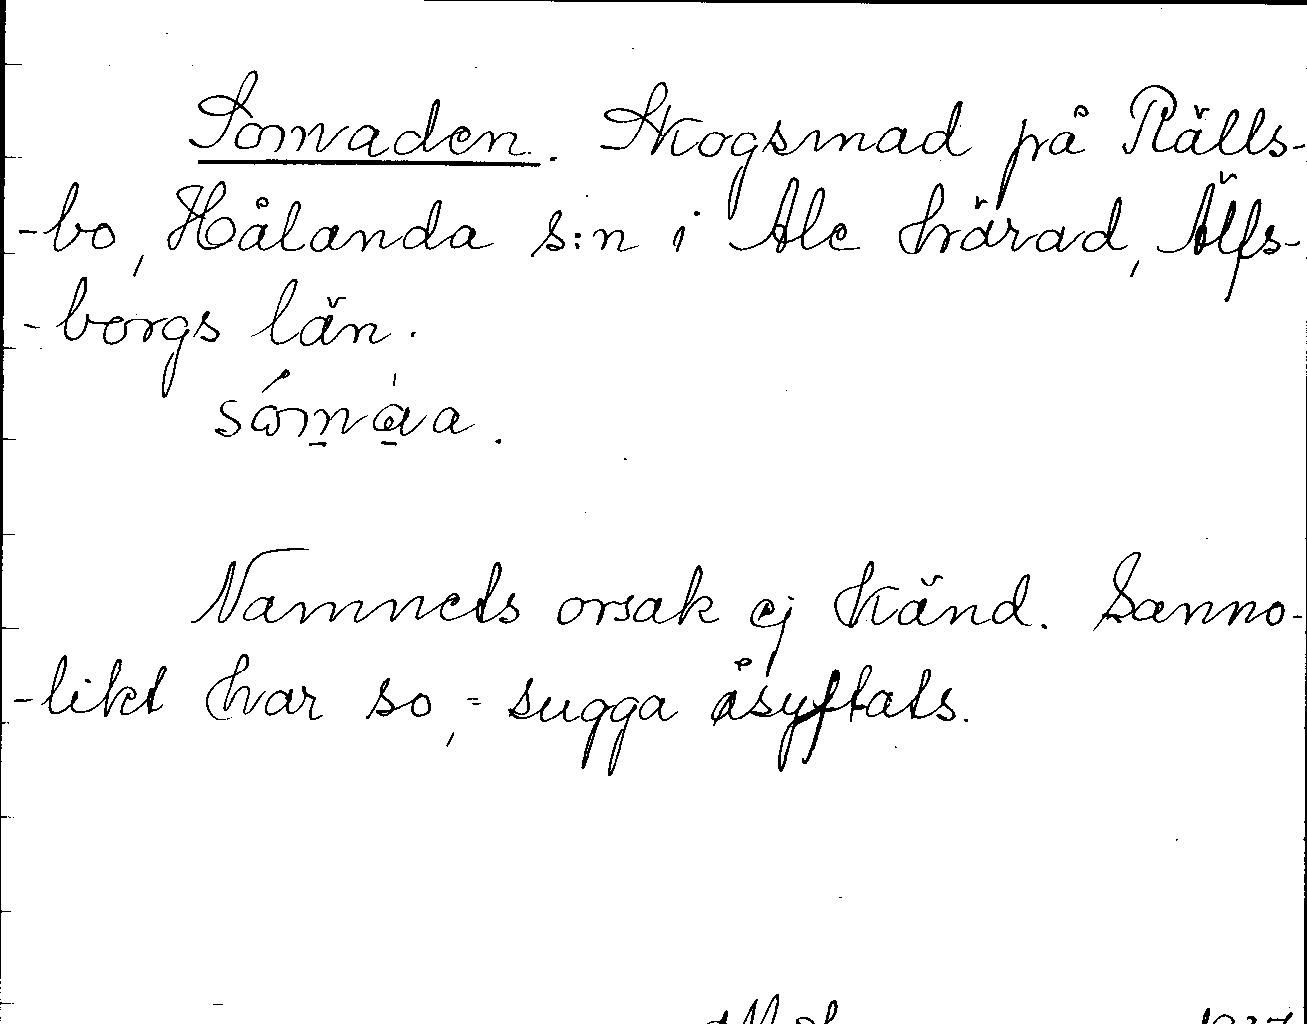 Somaden. Skogsmad på Rälls-
-bo, Hålanda s:n i Ale härad, Älfs-
-borgs län.
Namnets orsak ej känd. Sanno-
-likt har so, = sugga åsyftats.